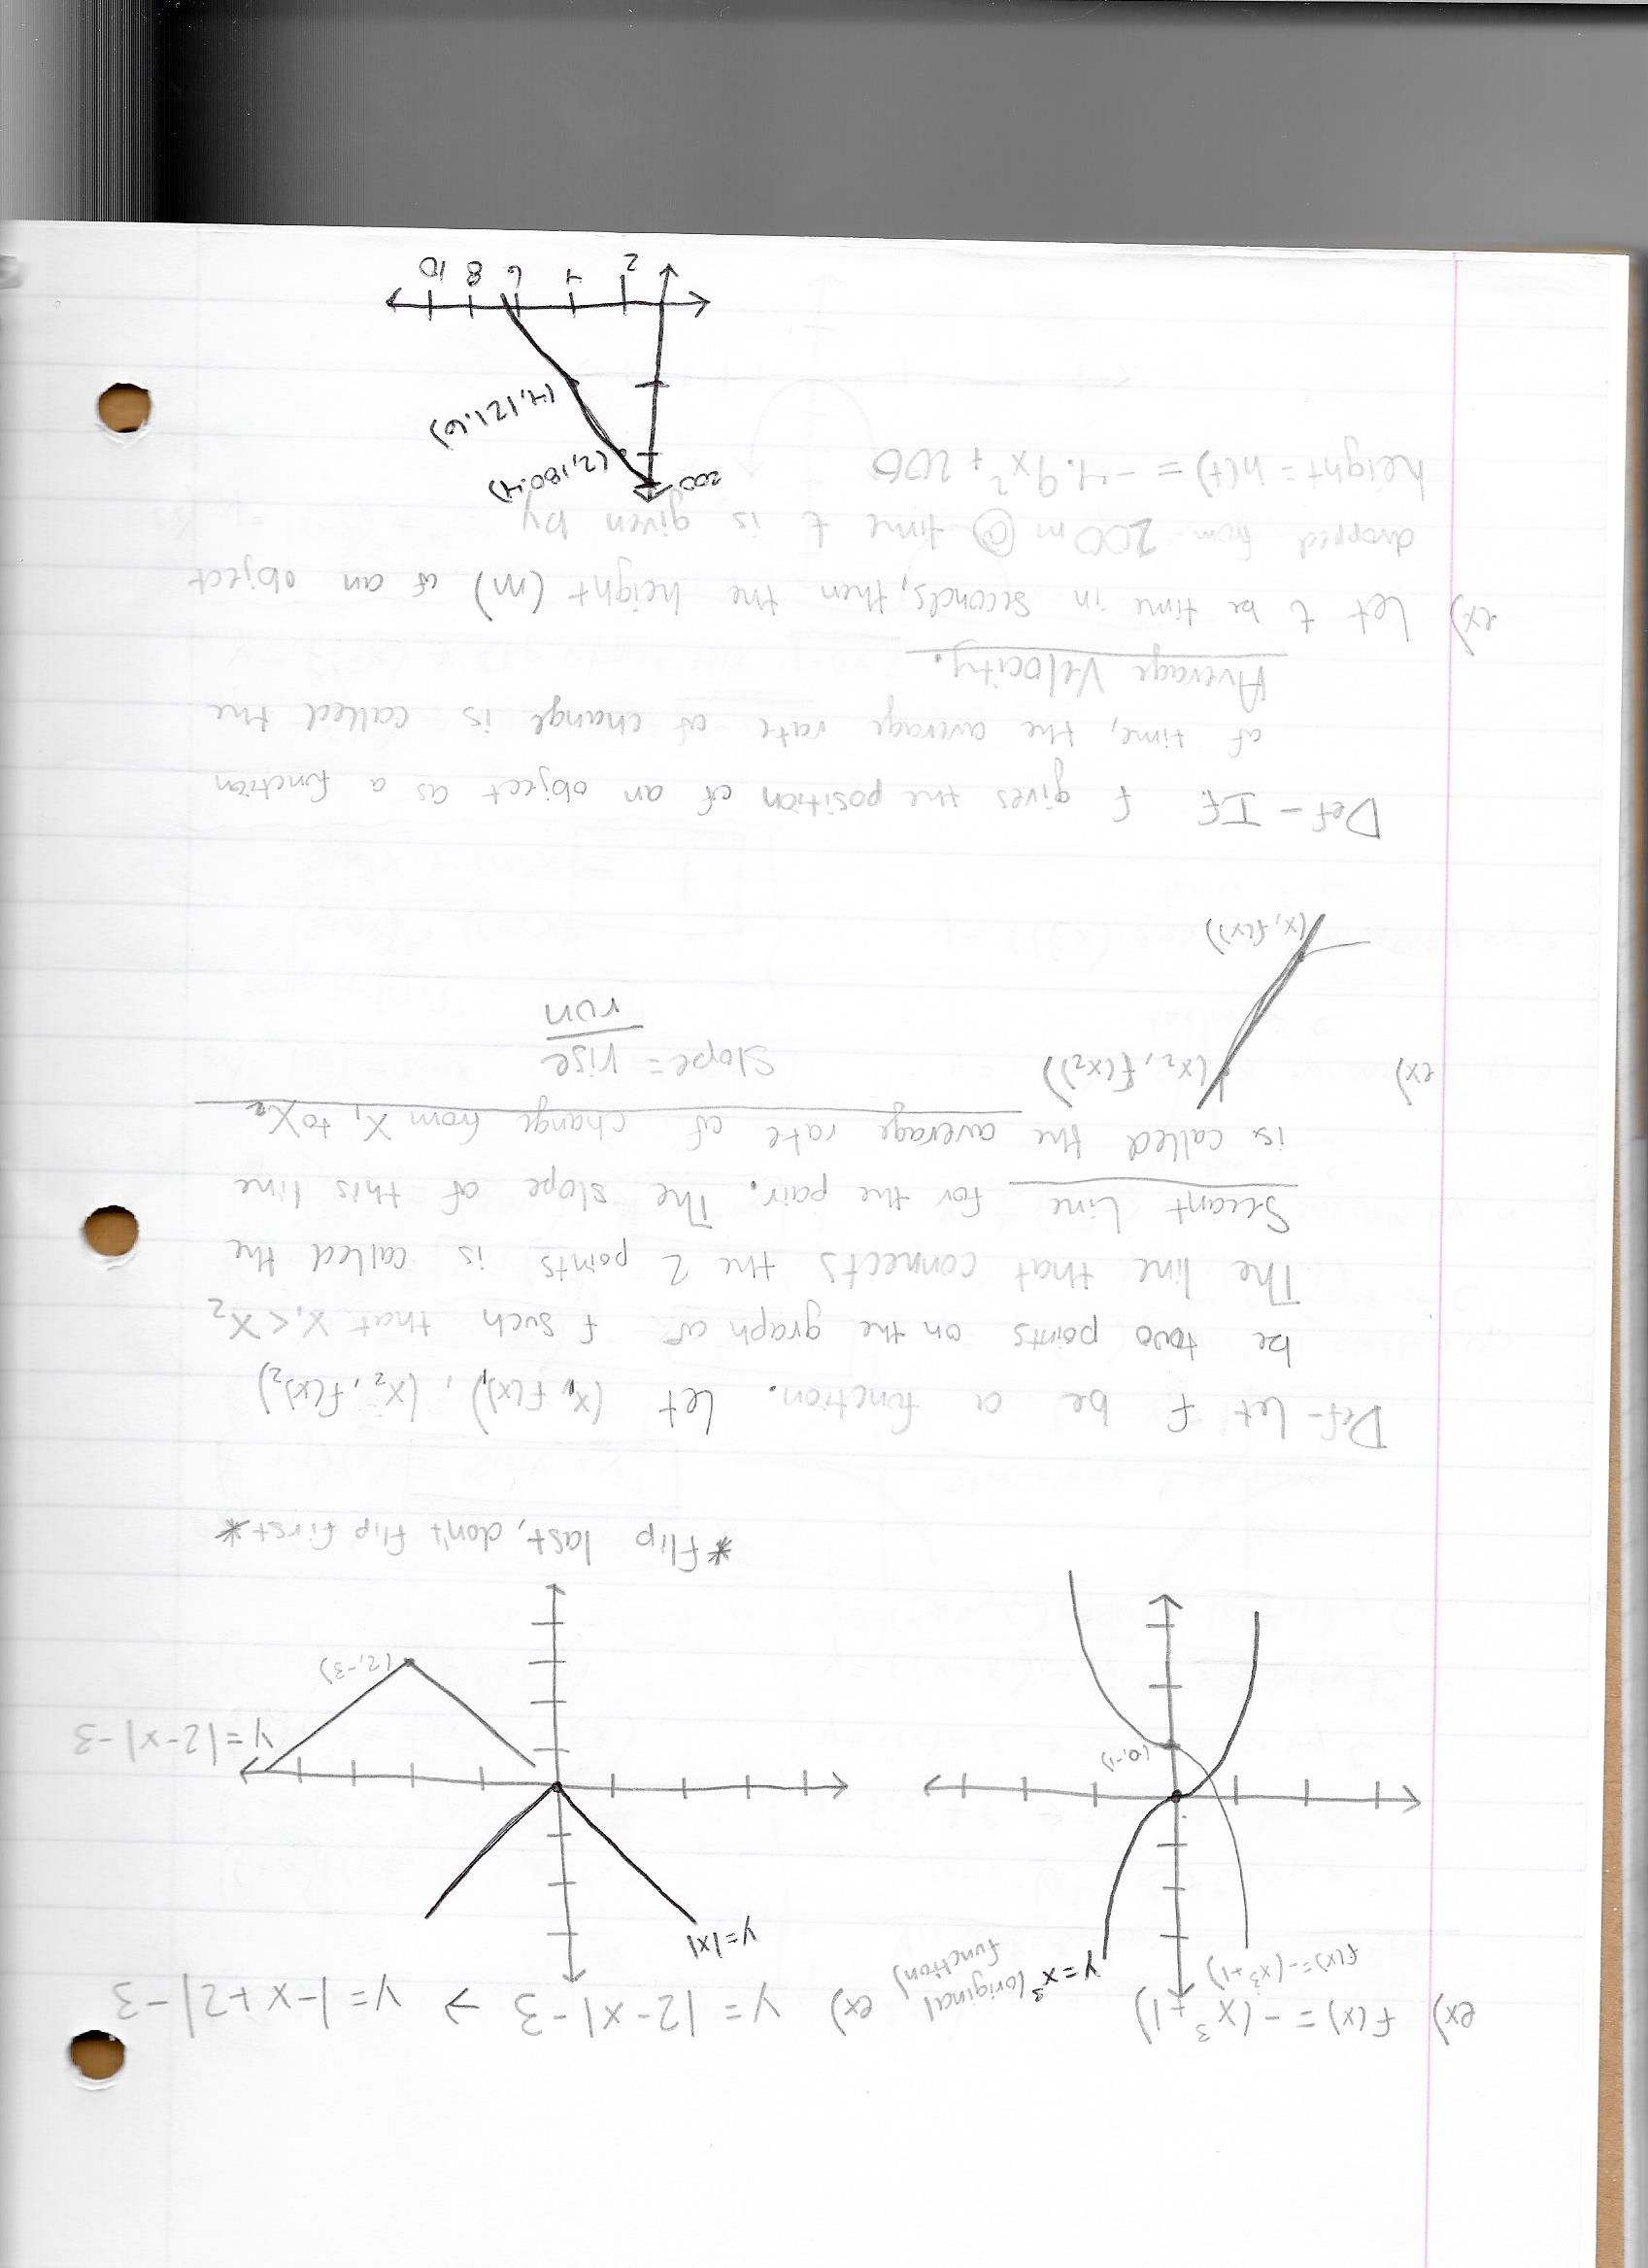 ex) f(x) = -(x³+1)
ex) y = |2-x| -3 → y = |-x+2| -3
f(x) = -(x³+1)
y=x³ (original
function)
(0,-1)
y=|x|
y=|2-x|-3
(2,-3)
*flip last, don't flip first*
Def- Let f be a function. Let (x₁, f(x)₁), (x₂, f(x)₂)
be two points on the graph of f such that x₁ < x₂
The line that connects the 2 points is called the
Secant Line for the pair. The slope of this line
is called the average rate of change from x₁ to x₂
ex)
(x₂, f(x₂))
(x, f(x))
slope = rise
run
Def- If f gives the position of an object as a function
of time, the average rate of change is called the
Average Velocity.
ex) Let t be time in seconds, then the height (m) of an object
dropped from 200m @ time t is given by
height = h(t) = -4.9x² + 200
200
(2,180.4)
(4,121.6)
2 4 6 8 10